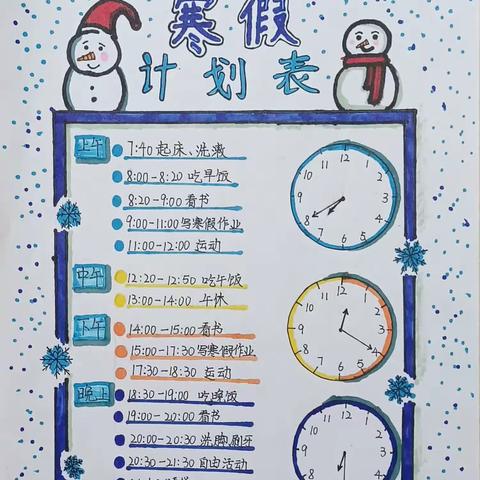 寒假
计划表
上午
7:40 起床、洗漱
8:00-8:20 吃早饭
8:20-9:00 看书
9:00-11:00 写寒假作业
11:00-12:00 运动
中午
12:20-12:50 吃午饭
13:00-14:00 午休
下午
14:00-15:00 看书
15:00-17:30 写寒假作业
17:30-18:30 运动
晚上
18:30-19:00 吃晚饭
19:00-20:00 看书
20:00-20:30 洗脚刷牙
20:30-21:30 自由活动
12
1
2
3
4
5
6
7
8
9
10
11
12
1
2
3
4
5
6
7
8
9
10
11
12
1
2
3
4
5
6
7
8
9
10
11